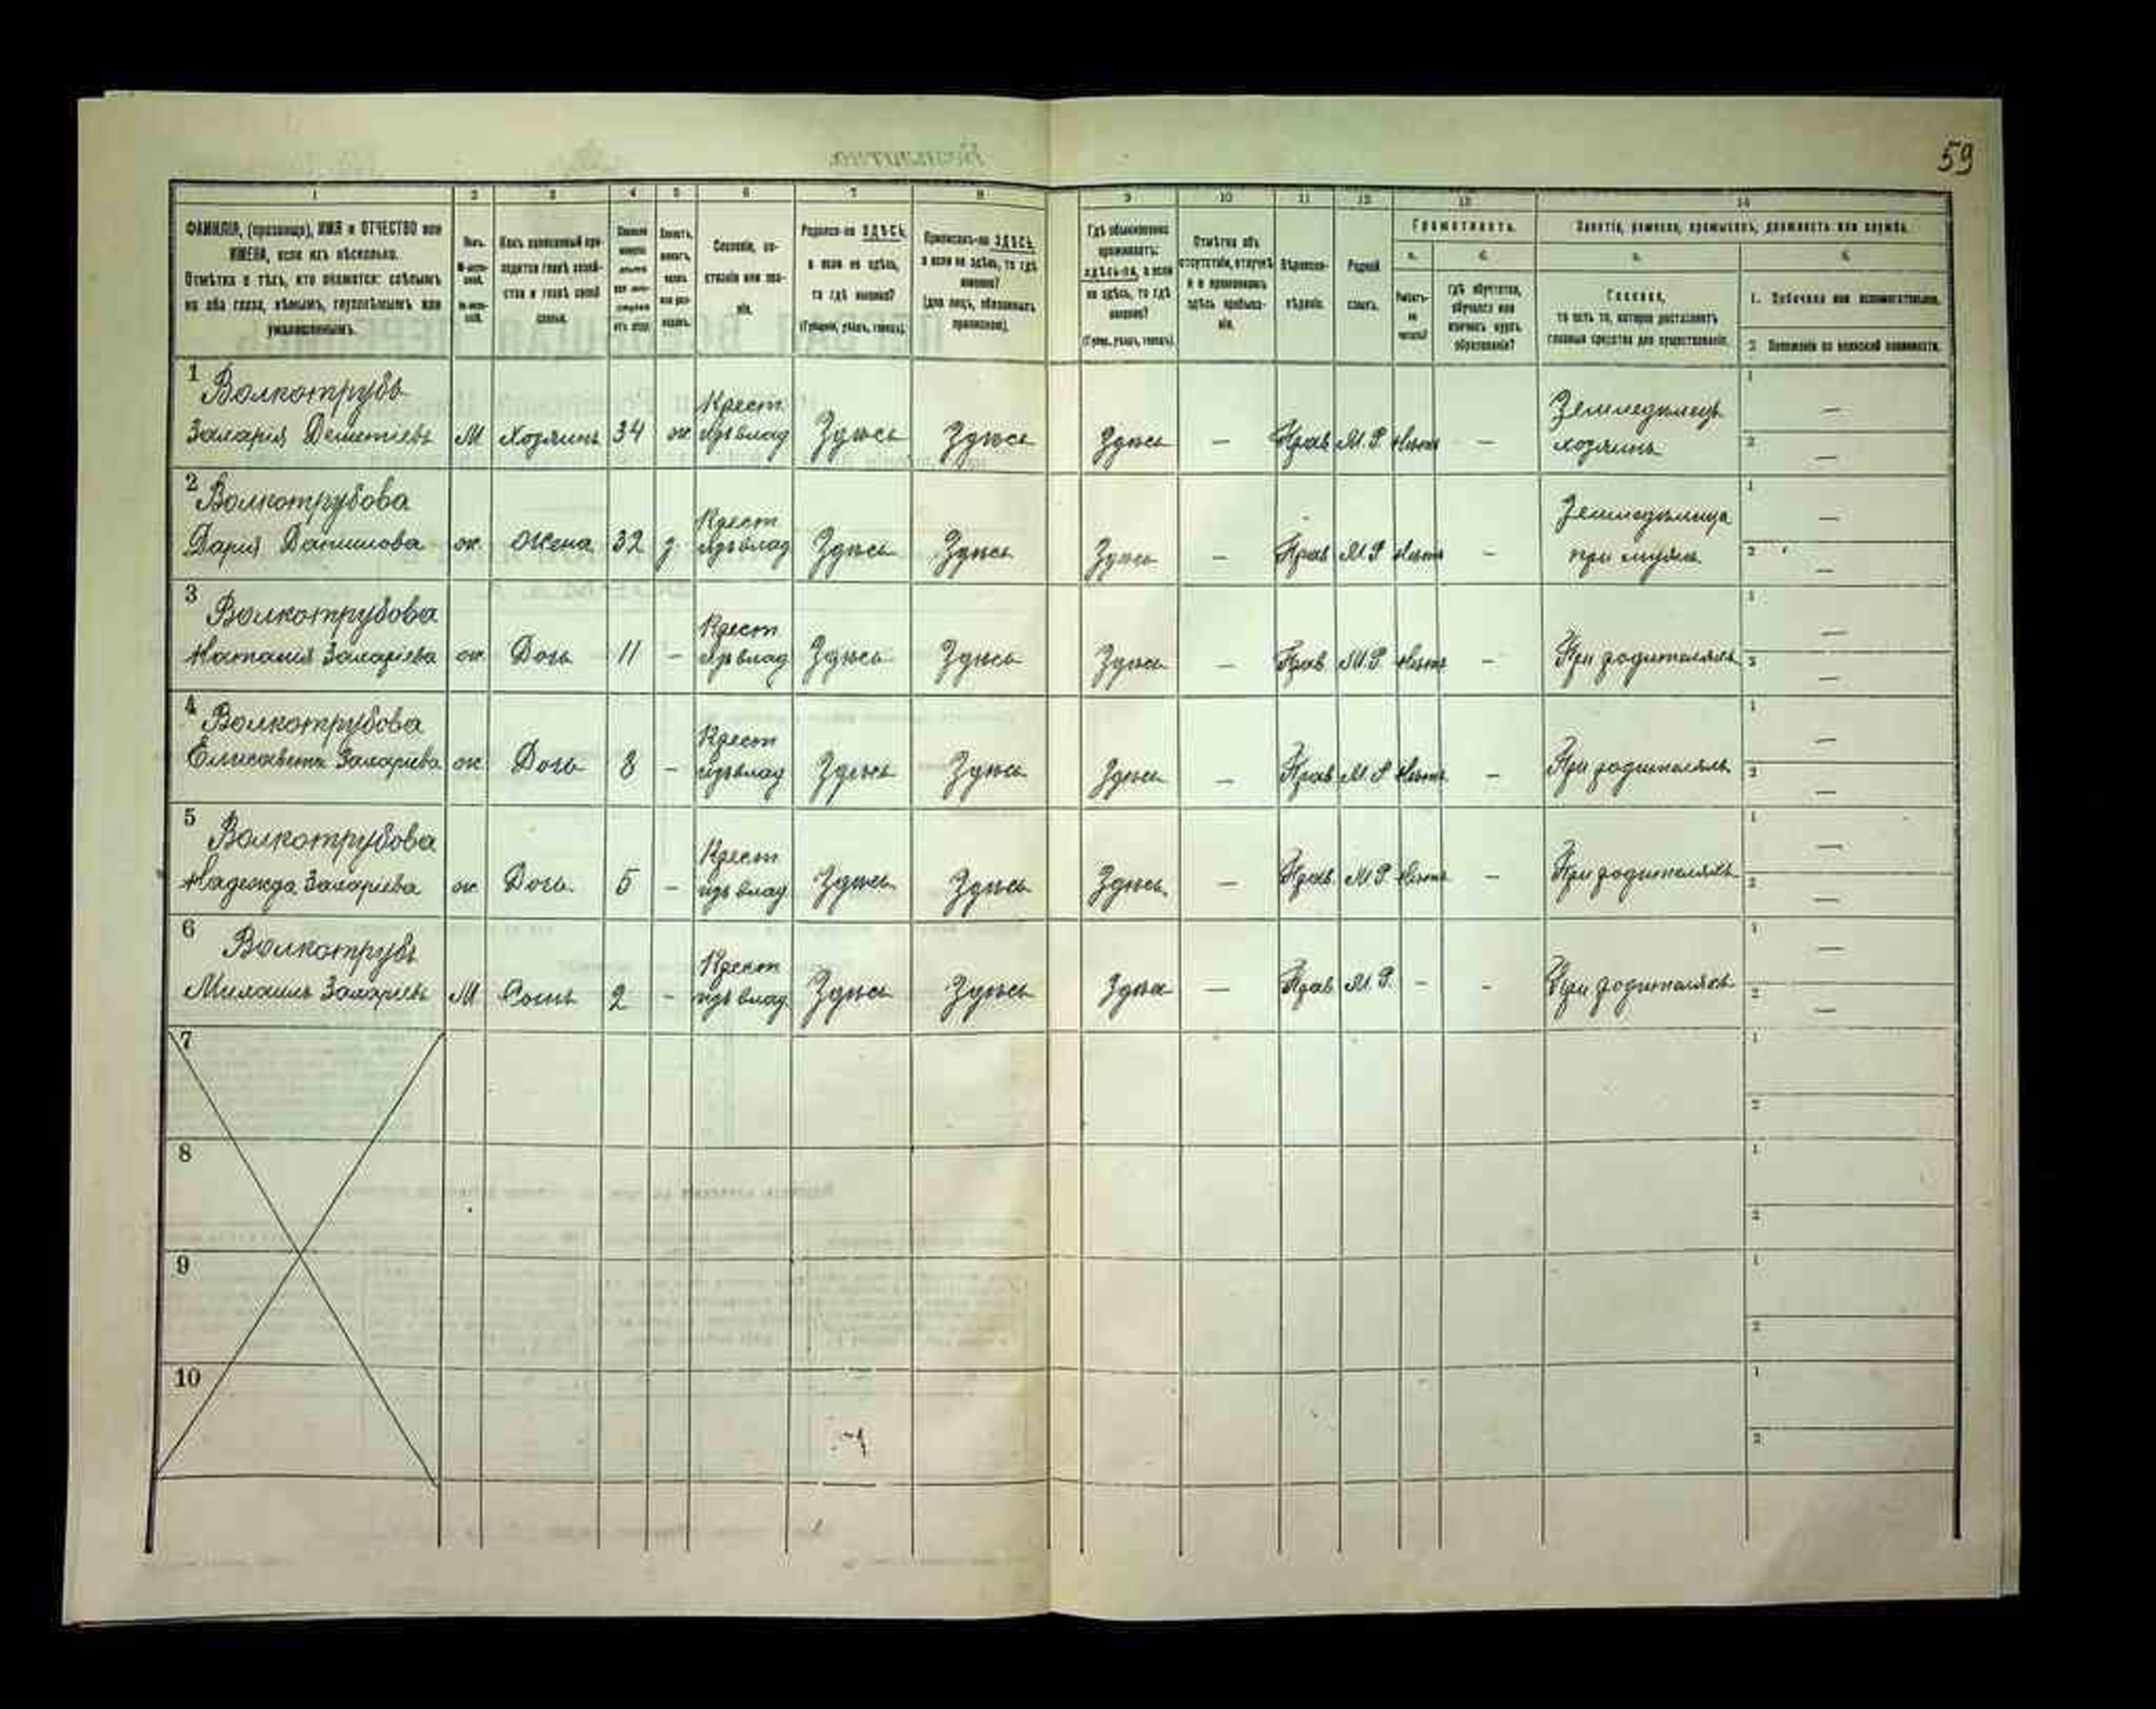 59
1 2 3 4 5 6 7 8 9 10 11 12 13 14
ФАМИЛІЯ, (прозвище), ИМЯ и ОТЧЕСТВО или
ИМЕНА, если ихъ нѣсколько.
Отмѣтка о тѣхъ, кто окажется: слѣпымъ
на оба глаза, нѣмымъ, глухонѣмымъ или
умалишеннымъ.
Полъ.
Какъ записанный при-
ходится главѣ хозяй-
ства и главѣ своей
семьи.
Сословіе, со-
стояніе или зва-
ніе.
Родился-ли ЗДѢСЬ,
а если не здѣсь,
то гдѣ именно?
(Губернія, уѣздъ, городъ).
Приписанъ-ли ЗДѢСЬ,
а если не здѣсь, то гдѣ
именно?
(для лицъ, обязанныхъ
припиской).
Гдѣ обыкновенно
проживаетъ:
здѣсь-ли, а если
не здѣсь, то гдѣ
именно?
(Губер., уѣздъ, городъ).
Отмѣтка объ
отсутствіи, отлучкѣ
и о временномъ
здѣсь пребыва-
ніи.
Вѣроиспо-
вѣданіе.
Родной
языкъ.
Грамотность.
а. б.
Умѣетъ-
ли
читать?
Гдѣ обучается,
обучался или
кончилъ курсъ
образованія?
Занятіе, ремесло, промыселъ, должность или служба.
а. б.
Главное,
то есть то, которое доставляетъ
главныя средства для существованія.
1. Побочное или вспомогательное.
2. Положеніе по воинской повинности.
1 Волкотрубъ
Захарія Дементіевъ М Хозяинъ 34 ж Крест. изъ влад Здѣсь Здѣсь Здѣсь — Прав М.Р Нѣтъ — Земледѣлецъ хозяинъ 1 — 2 —
2 Волкотрубова
Дарія Данилова ж Жена 32 з Крест изъ влад Здѣсь Здѣсь Здѣсь — Прав М.Р Нѣтъ — Земледѣлица при мужѣ 1 — 2 —
3 Волкотрубова
Наталія Захаріева ж Дочь 11 — Крест изъ влад Здѣсь Здѣсь Здѣсь — Прав М.Р. Нѣтъ — При родителяхъ 1 — 2 —
4 Волкотрубова
Елисавета Захаріева ж Дочь 8 — Крест изъ влад Здѣсь Здѣсь Здѣсь — Прав М.Р Нѣтъ — При родителяхъ 1 — 2 —
5 Волкотрубова
Надежда Захаріева ж Дочь 5 — Крест изъ влад Здѣсь Здѣсь Здѣсь — Прав М.Р Нѣтъ — При родителяхъ 1 — 2 —
6 Волкотрубъ
Михаилъ Захаріевъ М Сынъ 2 — Крест изъ влад Здѣсь Здѣсь Здѣсь — Прав М.Р. — — При родителяхъ 1 — 2 —
7 1 2
8 1 2
9 1 2
10 1 2